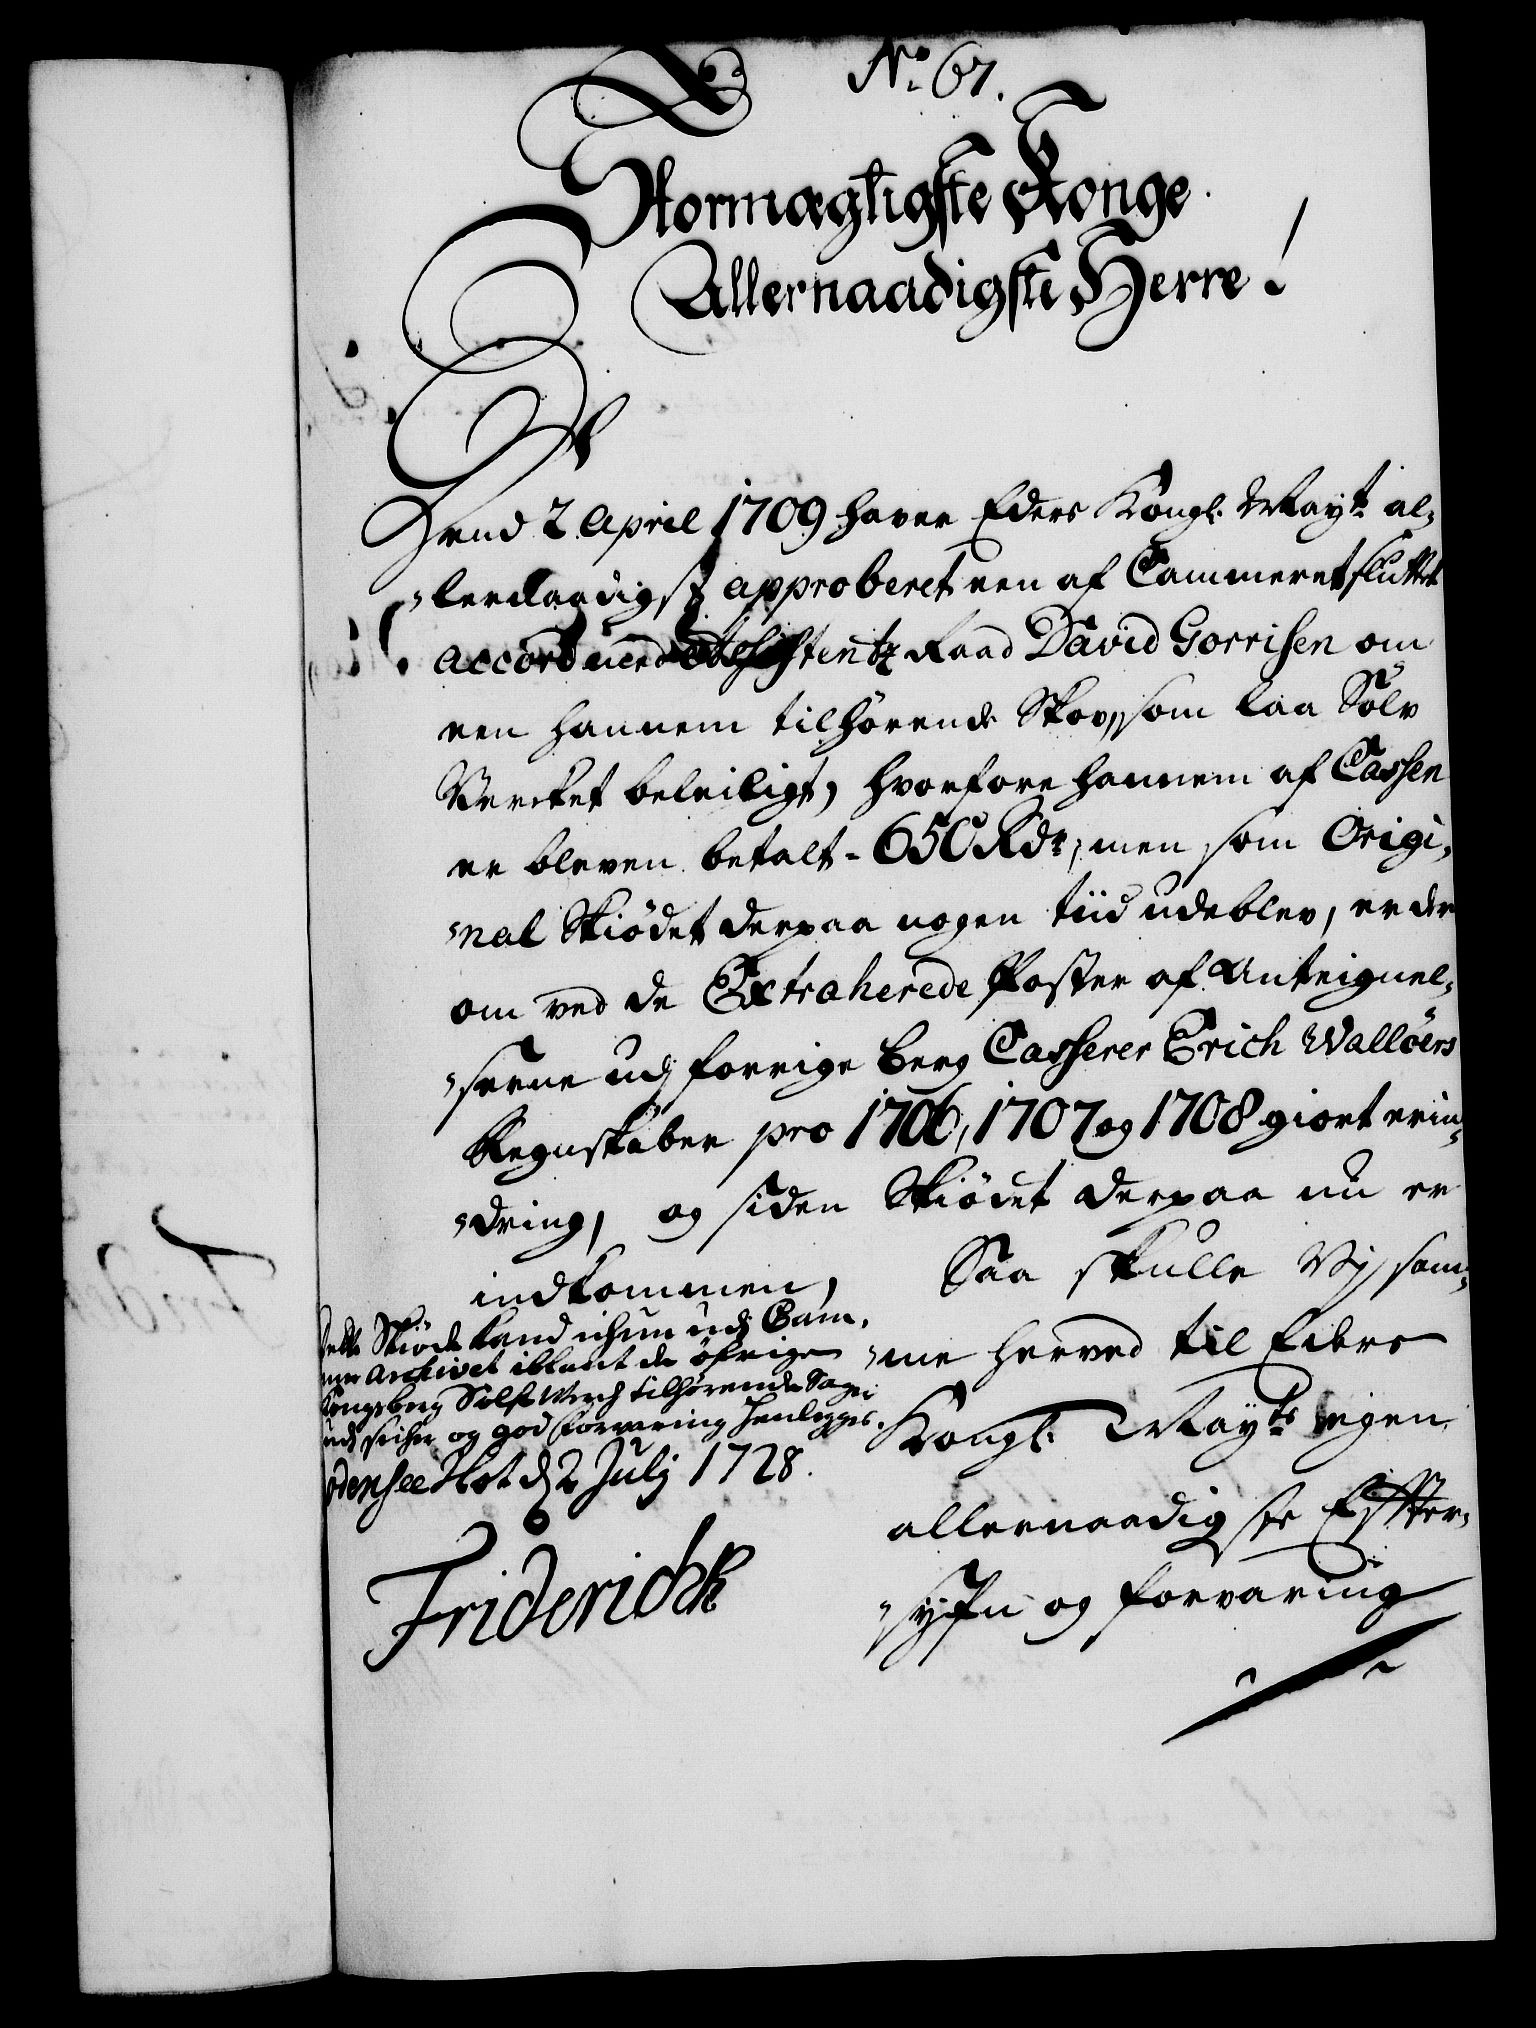 No. 67.
Stormægtigste Konge.
Allernaadigste Herre!
Dend 2 April 1709 haver Eders Kongl. Mayt. al-
lernaadigst approberet een af Cammeret sluttet
Accord med Etatz Raad David Gorrisen om
een hannem tilhørende Skov, som laa Sølv
Vercket beleiligt, hvorfore hannem af Cassen
er bleven betalt - 650 Rdr, men som Origi-
nal Skiødet derpaa nogen tiid udeblev, er der
om ved de Extraherede Poster af Anteignel-
serne udj forrige Berg Casserer Erich Walløers
Regnskaber pro 1706, 1707 og 1708 giort erin-
dring, og siden Skiødet derpaa nu er
indkommen, Saa skulle Vj sam-
me herved til Eders
Kongl. Mayts. eigen
allernaadigste Effter-
syfn og forvaring
Skiøde kand udj Cam-
mer Archivet iblant de øfrige
Kongsberg Sølf Verch tilhørende Sager
udj sicher og god forvaring henlegges.
Odensee Slot d 2 Julj 1728.
Friderich R